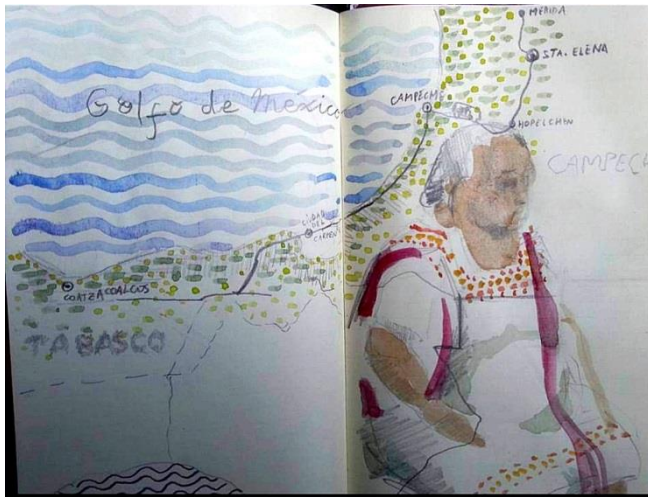 MERIDA
STA. ELENA
Golfo de México
CAMPECHE
HOPELCHEN
CAMPECH
CIUDAD
DEL
CARMEN
COATZACOALCOS
TABASCO